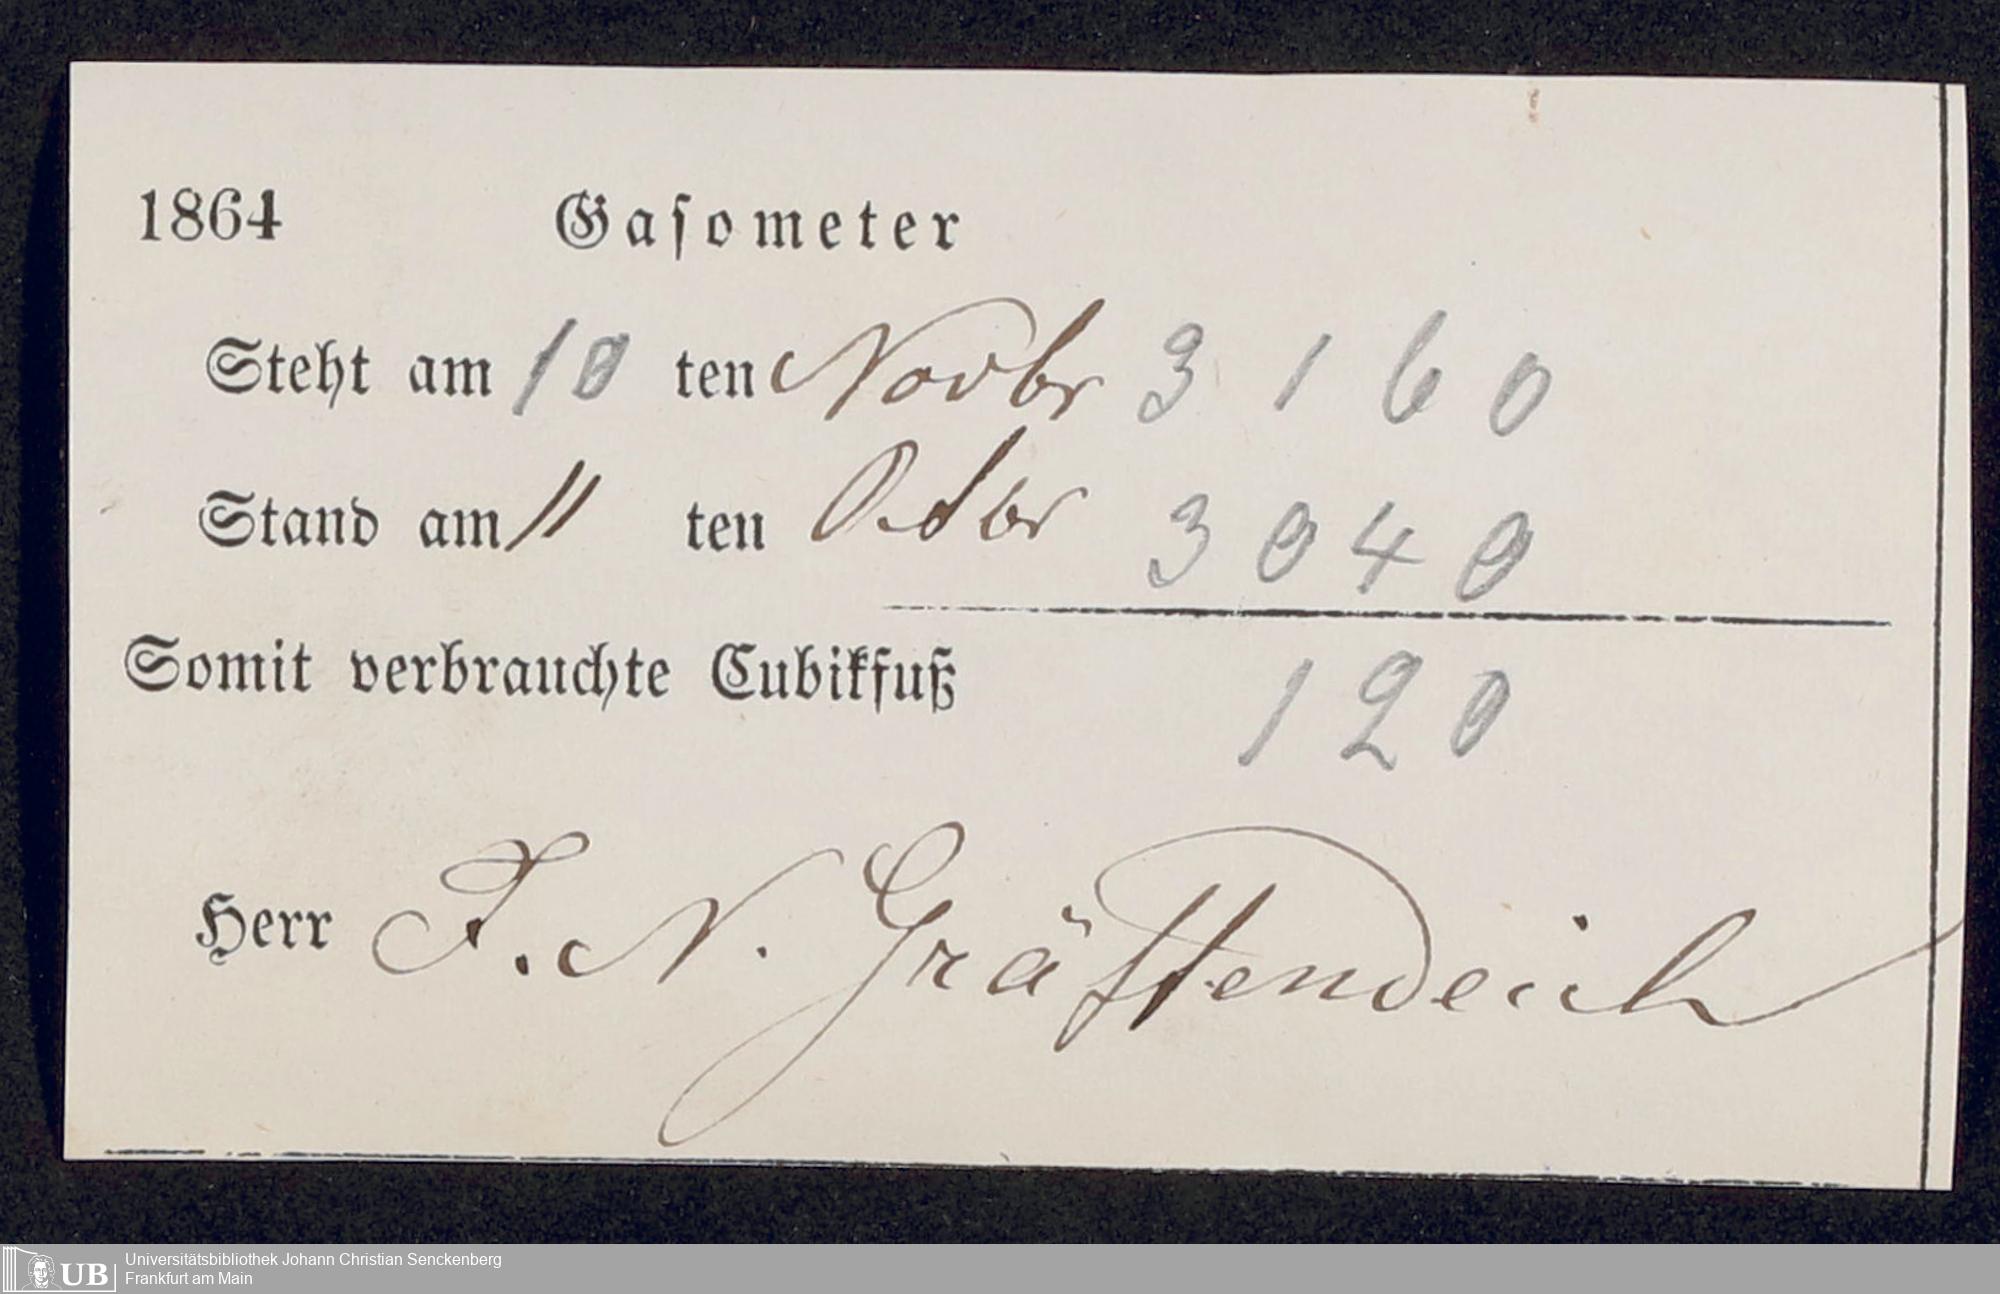 1864 Gasometer
Steht am 10 ten Novbr 3160
Stand am 11 ten Octbr 3040
Somit verbrauchte Cubikfuß 120
Herr J. N. Gräffendeich
UB
Universitätsbibliothek Johann Christian Senckenberg
Frankfurt am Main